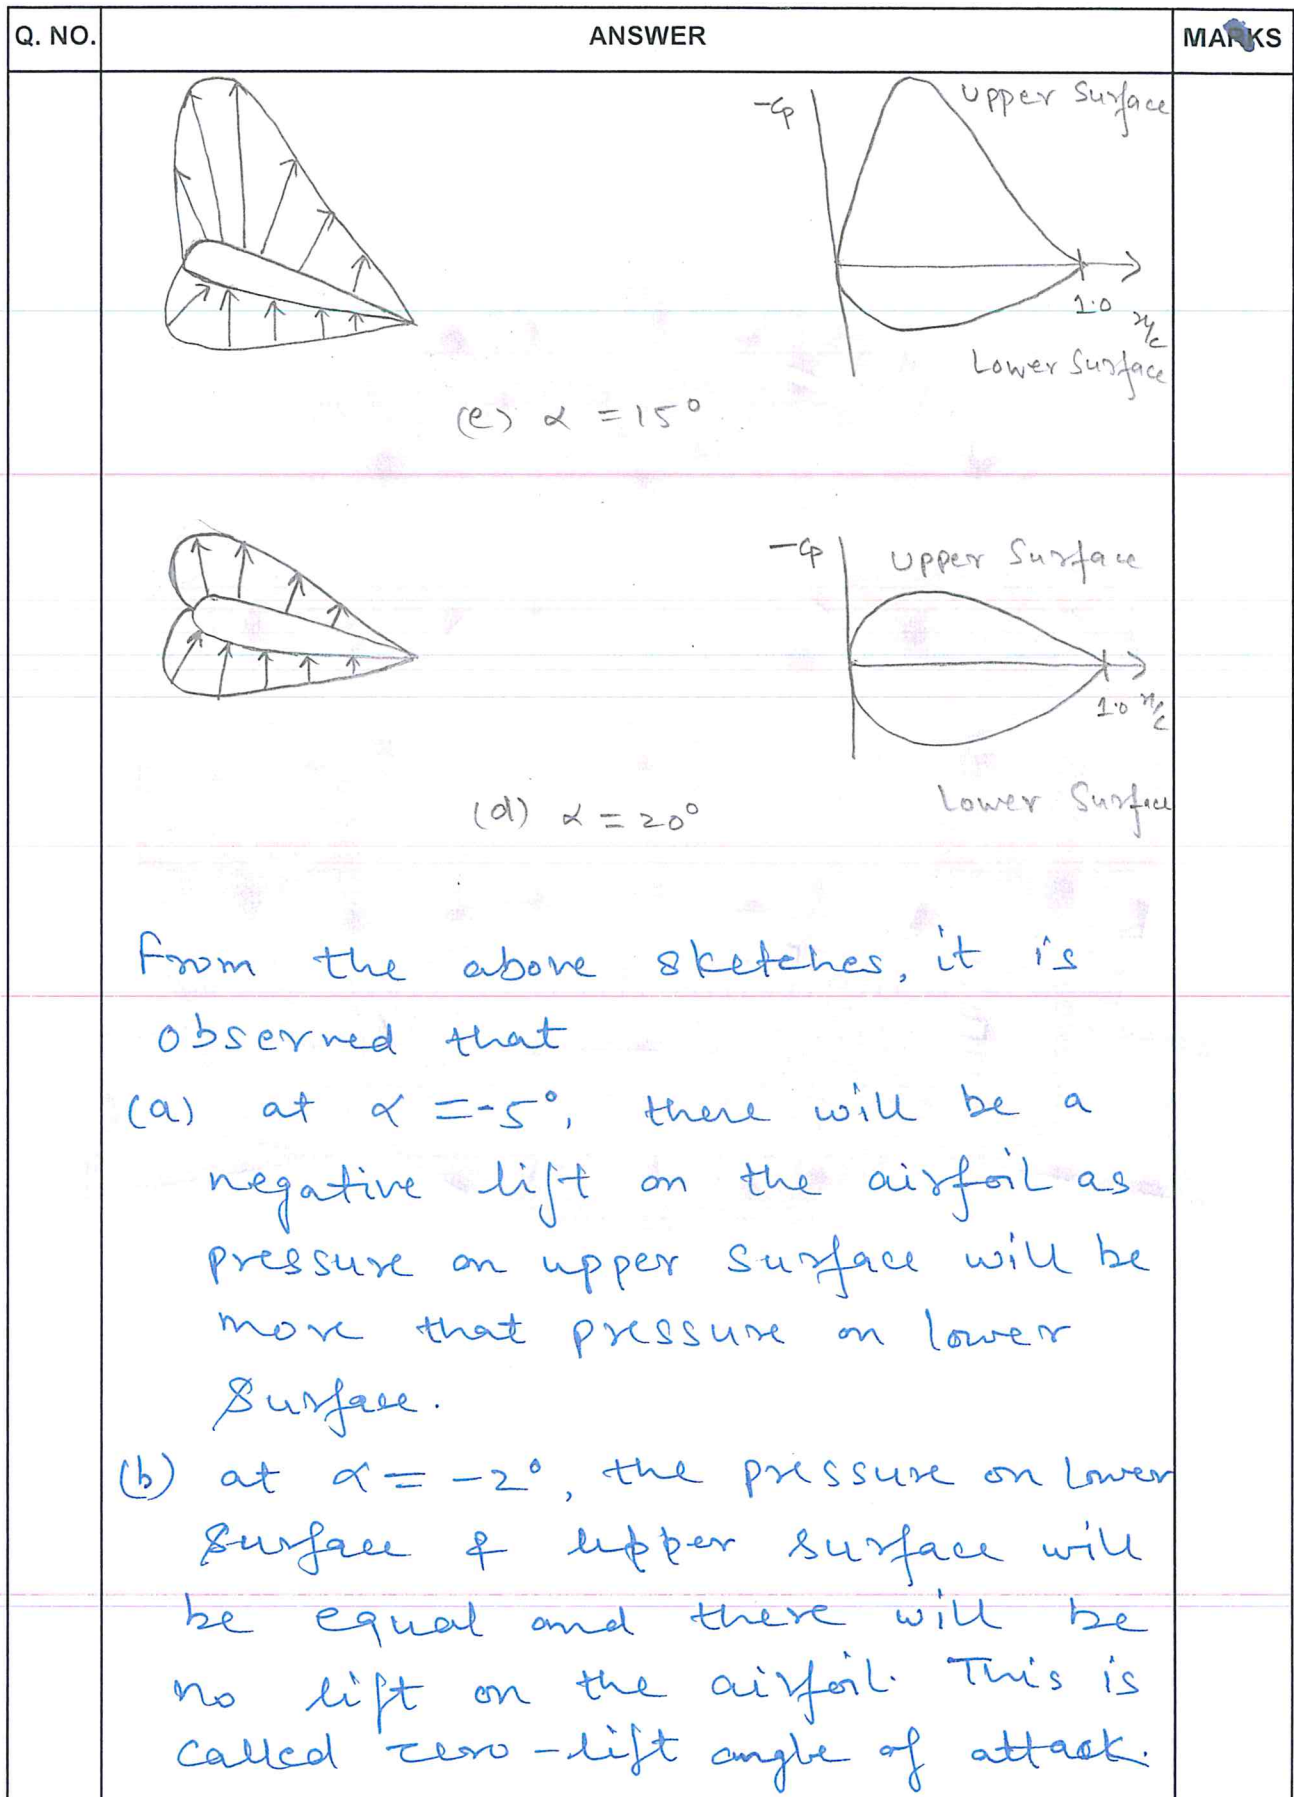 Q. NO. ANSWER MARKS
-Cp Upper Surface
1.0 x/c
Lower Surface
(e) α = 15°
-Cp Upper Surface
1.0 x/c
Lower Surface
(d) α = 20°
From the above sketches, it is
observed that
(a) at α = -5°, there will be a
negative lift on the airfoil as
pressure on upper surface will be
more that pressure on lower
surface.
(b) at α = -2°, the pressure on lower
surface & upper surface will
be equal and there will be
no lift on the airfoil. This is
called zero-lift angle of attack.